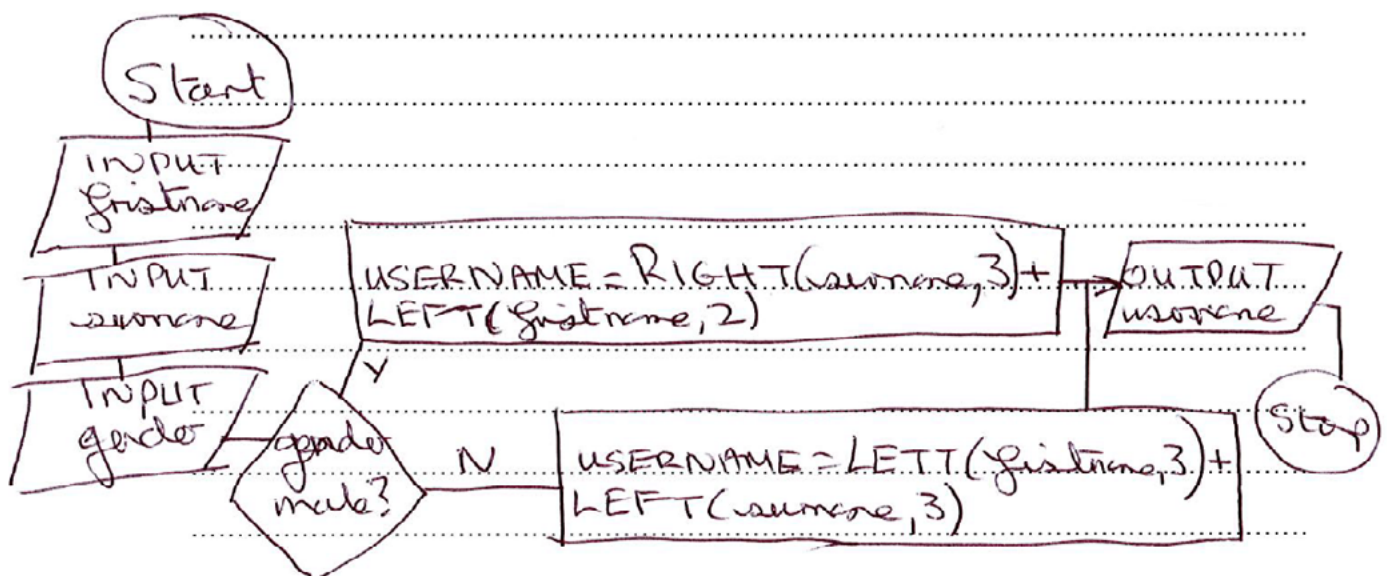 Start
INPUT
firstname
INPUT
surname
INPUT
gender
gender
male?
Y
USERNAME=RIGHT(surname,3)+
LEFT(firstname,2)
N
USERNAME=LETT(firstname,3)+
LEFT(surname,3)
OUTPUT
username
Stop